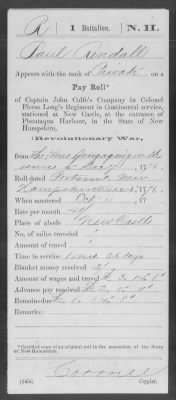 R | 1 Battalion. | N. H.
Paul Rendall
Appears with the rank of Private on a
Pay Roll*
of Captain John Calfe's Company in Colonel
Pierse Long's Regiment in Continental service,
stationed at New Castle, at the entrance of
Piscataqua Harbour, in the State of New
Hampshire,
Revolutionary War,
from the time engaging in the
service to Dec 7, 1776
Roll dated Portsmo, New
Hampshire Dec 1776.
When mustered Oct 11, 17
Rate per month 40/
Place of abode New Castle
No. of miles travelled
Amount of travel
Time in service 1 mo. 28 days
Blanket money received
Amount of wages and travel
Advance pay received
Remainder
Remarks:
*Certified copy of an original roll in the possession of the State
of New Hampshire.
Copyist.